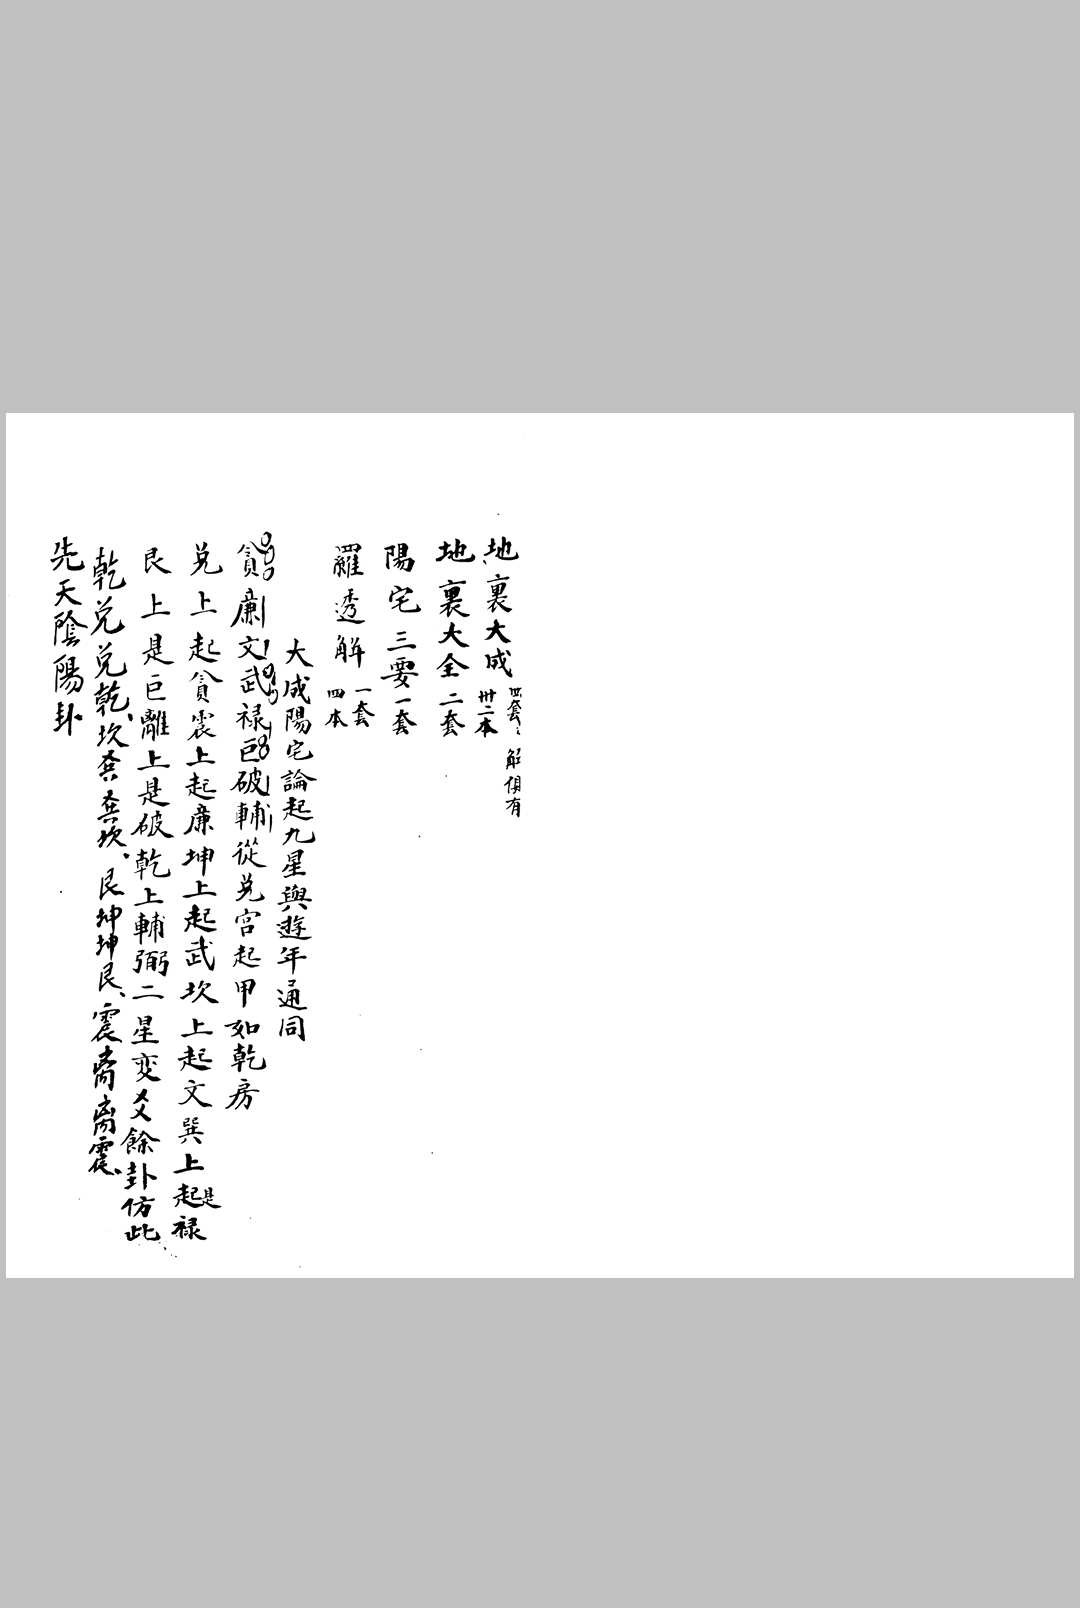 地裏大成 四套 卅二本 解 有
地裏大全二套
陽宅三要一套
羅透解 一套 四本
大成陽宅論起九星與遊年通同
貪廉文武祿巨破輔從兌宮起甲如乾房
兌上起貪震上起廉坤上起武坎上起文巽上起是祿
艮上是巨離上是破乾上輔弼二星変爻餘卦仿此
乾兌兌乾、坎㢲㢲坎、艮坤坤艮、震离离震、
先天陰陽卦